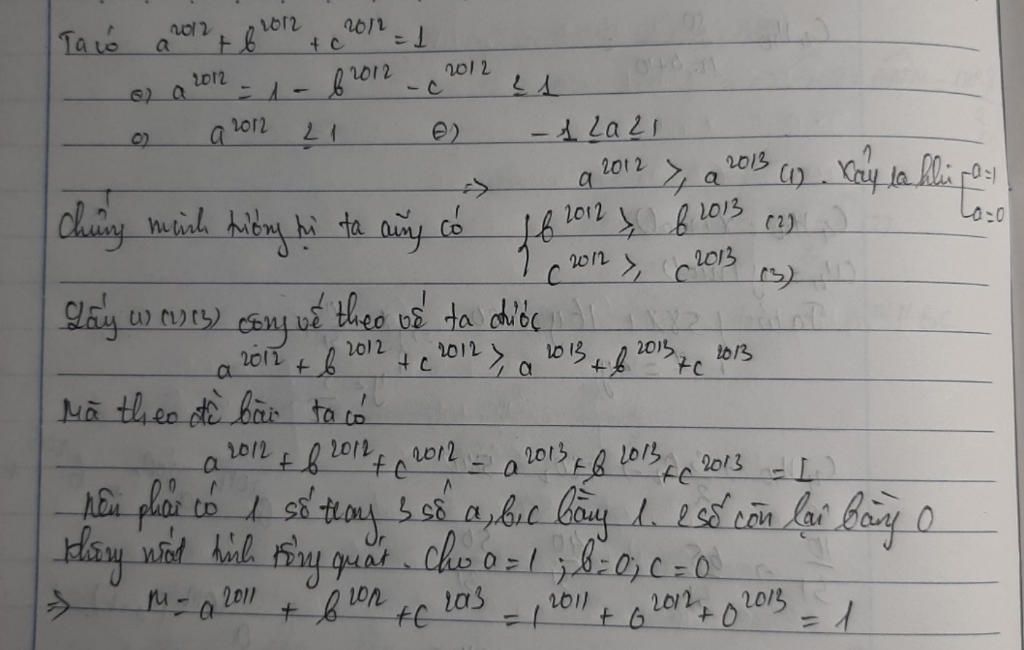 Ta có a^2012 + b^2012 + c^2012 = 1
⇔ a^2012 = 1 - b^2012 - c^2012 ≤ 1
⇔ a^2012 ≤ 1 ⇔ -1 ≤ a ≤ 1
⇒ a^2012 ≥ a^2013 (1). Xẩy ra khi [a=1
a=0
Chứng minh tương tự ta cũng có { b^2012 ≥ b^2013 (2)
c^2012 ≥ c^2013 (3)
Lấy (1) (2) (3) cộng vế theo vế ta được
a^2012 + b^2012 + c^2012 ≥ a^2013 + b^2013 + c^2013
Mà theo đề bài ta có
a^2012 + b^2012 + c^2012 = a^2013 + b^2013 + c^2013 = 1
nên phải có 1 số trong 3 số a, b, c bằng 1. 2 số còn lại bằng 0
không mất tính tổng quát. Cho a = 1 ; b = 0 ; c = 0
⇒ M = a^2011 + b^2012 + c^2013 = 1^2011 + 0^2012 + 0^2013 = 1